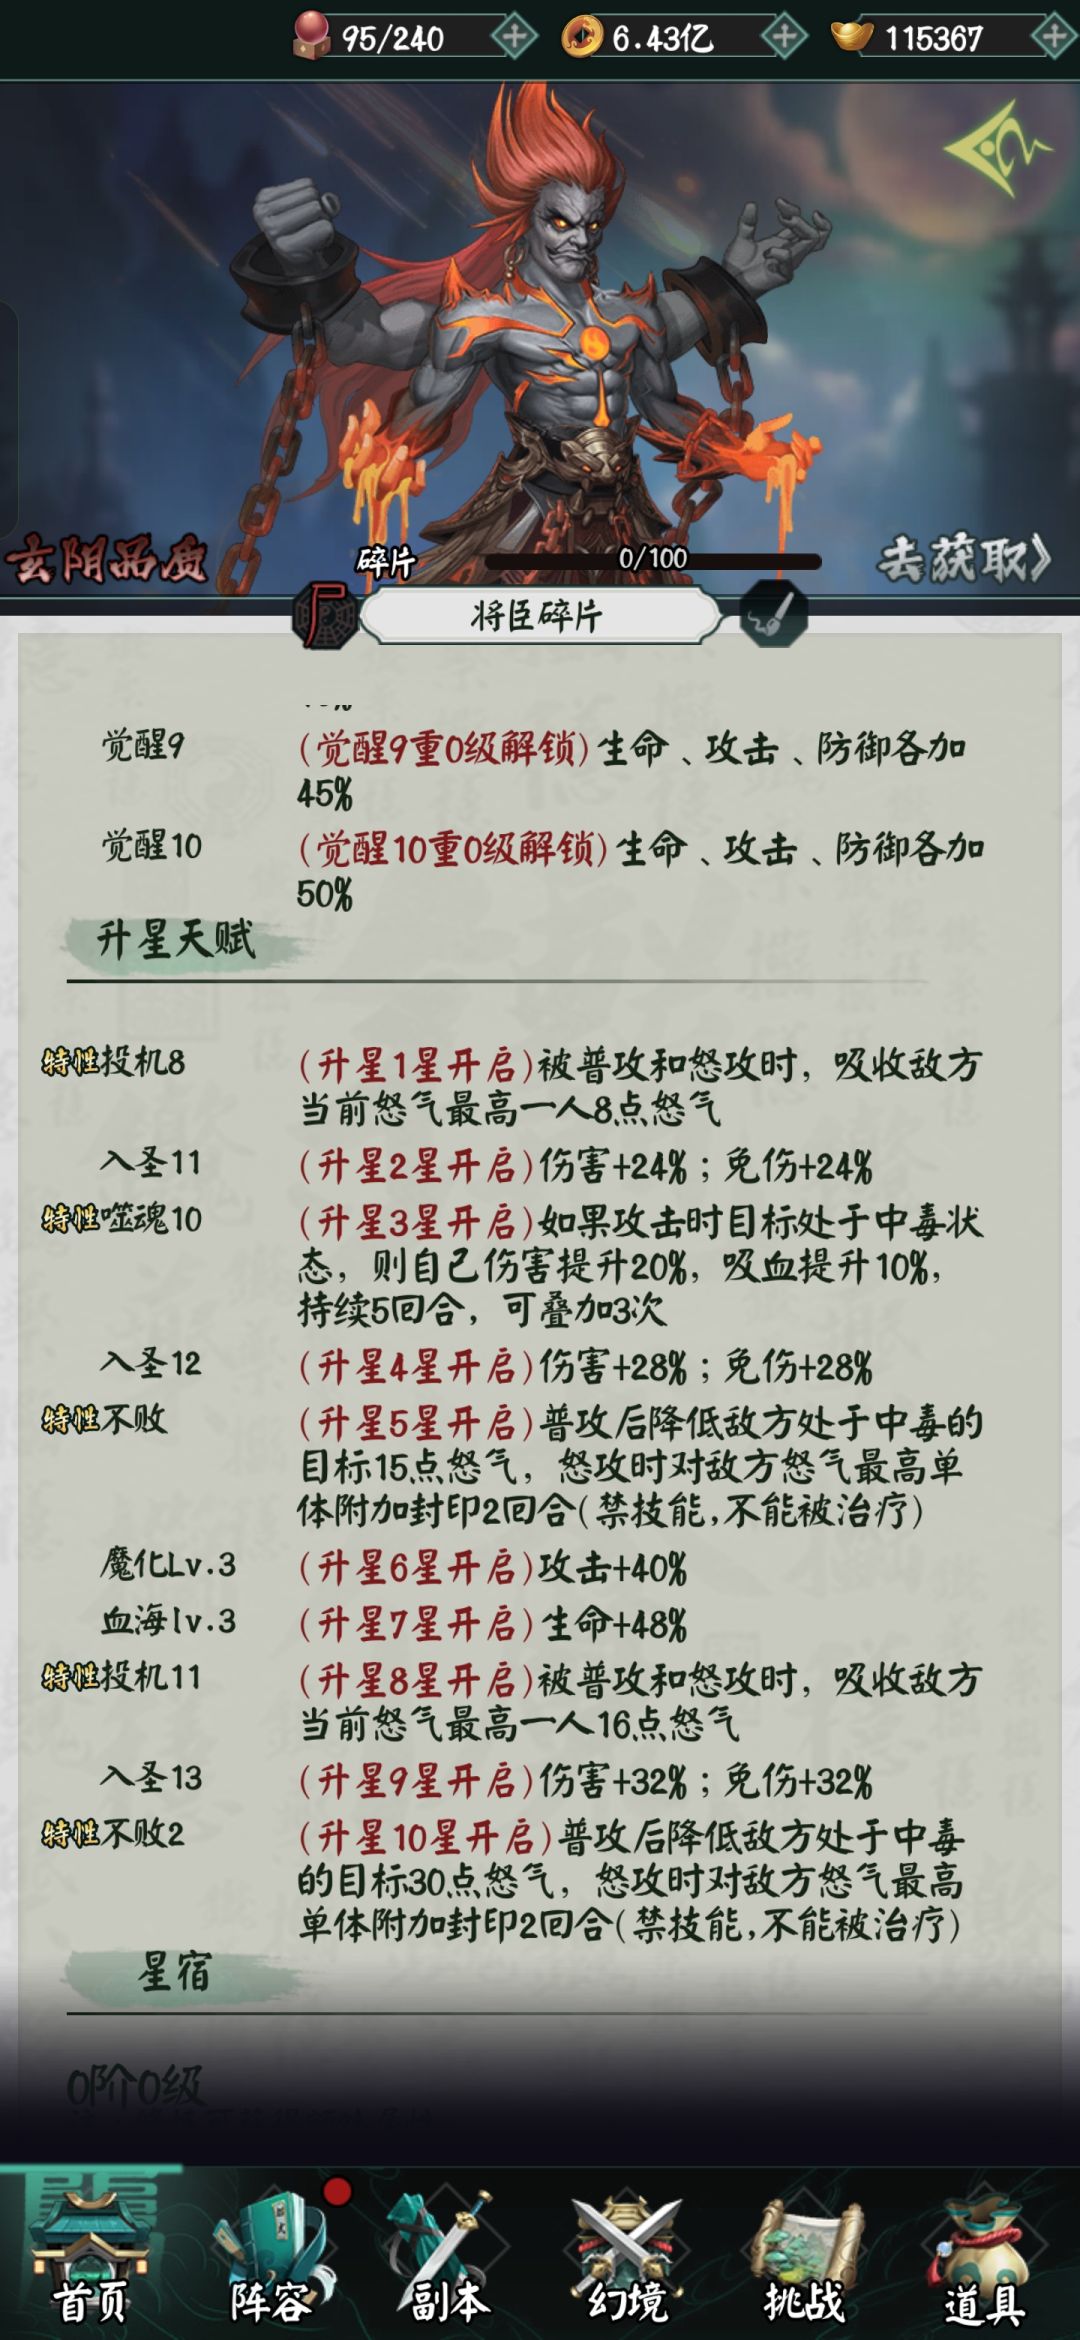 95/240
6.43亿
115367
玄阴品质
碎片
0/100
去获取》
尸
将臣碎片
觉醒9
(觉醒9重0级解锁)生命、攻击、防御各加
45%
觉醒10
(觉醒10重0级解锁)生命、攻击、防御各加
50%
升星天赋
特性投机8
(升星1星开启)被普攻和怒攻时，吸收敌方
当前怒气最高一人8点怒气
入圣11
(升星2星开启)伤害+24%；免伤+24%
特性噬魂10
(升星3星开启)如果攻击时目标处于中毒状
态，则自己伤害提升20%，吸血提升10%，
持续5回合，可叠加3次
入圣12
(升星4星开启)伤害+28%；免伤+28%
特性不败
(升星5星开启)普攻后降低敌方处于中毒的
目标15点怒气，怒攻时对敌方怒气最高单
体附加封印2回合(禁技能,不能被治疗)
魔化Lv.3
(升星6星开启)攻击+40%
血海lv.3
(升星7星开启)生命+48%
特性投机11
(升星8星开启)被普攻和怒攻时，吸收敌方
当前怒气最高一人16点怒气
入圣13
(升星9星开启)伤害+32%；免伤+32%
特性不败2
(升星10星开启)普攻后降低敌方处于中毒
的目标30点怒气，怒攻时对敌方怒气最高
单体附加封印2回合(禁技能,不能被治疗)
星宿
0阶0级
首页
阵容
副本
幻境
挑战
道具